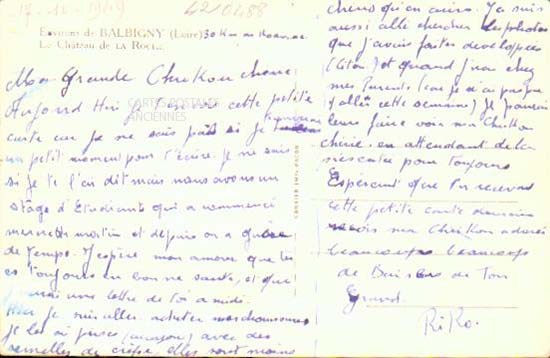 17-12-1949
4210488
Environs de BALBIGNY (Loire) 30 Km de Roanne
Le Château de LA ROCHE
Ma Grande Cherikou cherie
Aujourd Hui je t'envoie cette petite
carte car je ne sais pas si je trouverai
un petit moment pour t'écrire. Je ne sais
si je te l'ai dit mais nous avons un
stage d'Etudiants qui a commencé
mercredi matin et depuis on a guère
de temps. J'espère mon amour que tu
es toujours en bonne santé, et que
j'aurai une lettre de toi a midi.
Hier je suis aller acheter mes chaussures
je les ai prises (marron) avec des
semelles de crèpe, elles sont moins
CARTES POSTALES
ANCIENNES
chères qu'en cuirs. J'ai suis
aussi allé chercher les photos
que j'avais faites développées
et quand j'irai chez
mes Parents (car je n'ai pas pu
y aller cette semaine) je pourrai
leur faire voir ma Cherikou
chérie, en attendant de la
présenter pour toujours
Espèrent que tu recevras
cette petite carte demain
reçois ma Cherikou adorée
beaucoup beaucoup
de Baisers de Ton
Grand.
RiKo.